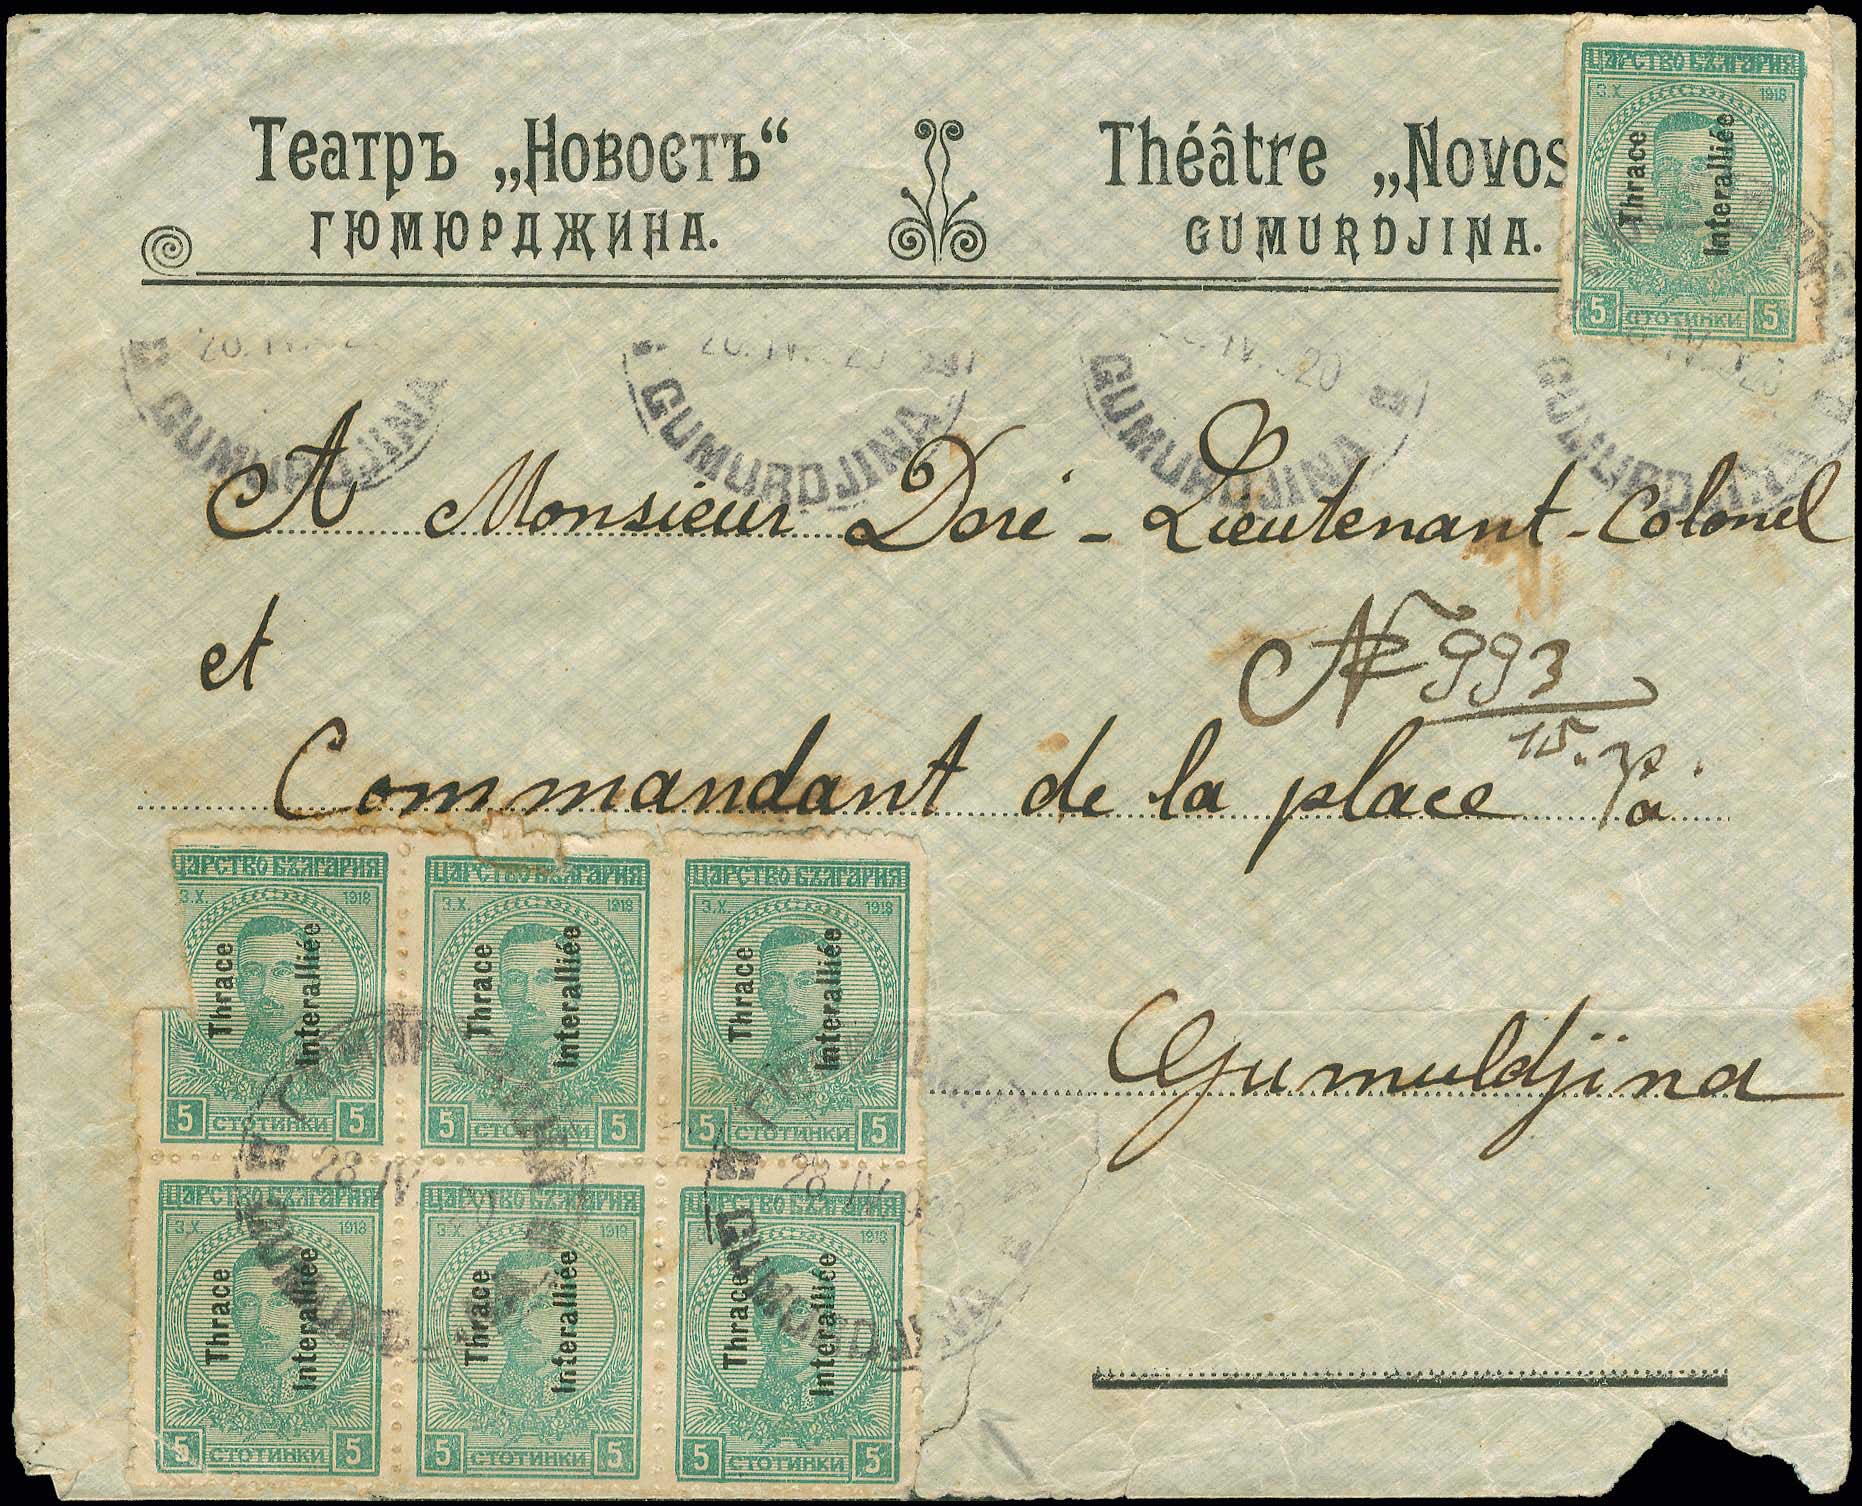 Театръ „Новостъ“
ГЮМЮРДЖИНА.
Théâtre „Novos
GUMURDJINA.
ЦАРСТВО БЪЛГАРИЯ
3.X. 1918
Thrace
Interalliée
5 СТОТИНКИ 5
20.IV.
GUMURDJINA
20.IV. 20
GUMURDJINA
IV. 920
GUMURDJINA
GUMURDJINA
A Monsieur Doré - Lieutenant-Colonel
et
№ 993
15.
Commandant de la place à
Gumuldjina
ЦАРСТВО БЪЛГАРИЯ ЦАРСТВО БЪЛГАРИЯ ЦАРСТВО БЪЛГАРИЯ
3.X. 1918 3.X. 1918 3.X. 1918
Thrace Interalliée Thrace Interalliée Thrace Interalliée
5 СТОТИНКИ 5 5 СТОТИНКИ 5 5 СТОТИНКИ 5
28 IV 28 IV
ЦАРСТВО БЪЛГАРИЯ ЦАРСТВО БЪЛГАРИЯ ЦАРСТВО БЪЛГАРИЯ
3.X. 1918 3.X. 1918 1918
Thrace Interalliée Thrace Interalliée Thrace Interalliée
GUMURDJINA
5 СТОТИНКИ 5 5 СТОТИНКИ 5 5 СТОТИНКИ 5